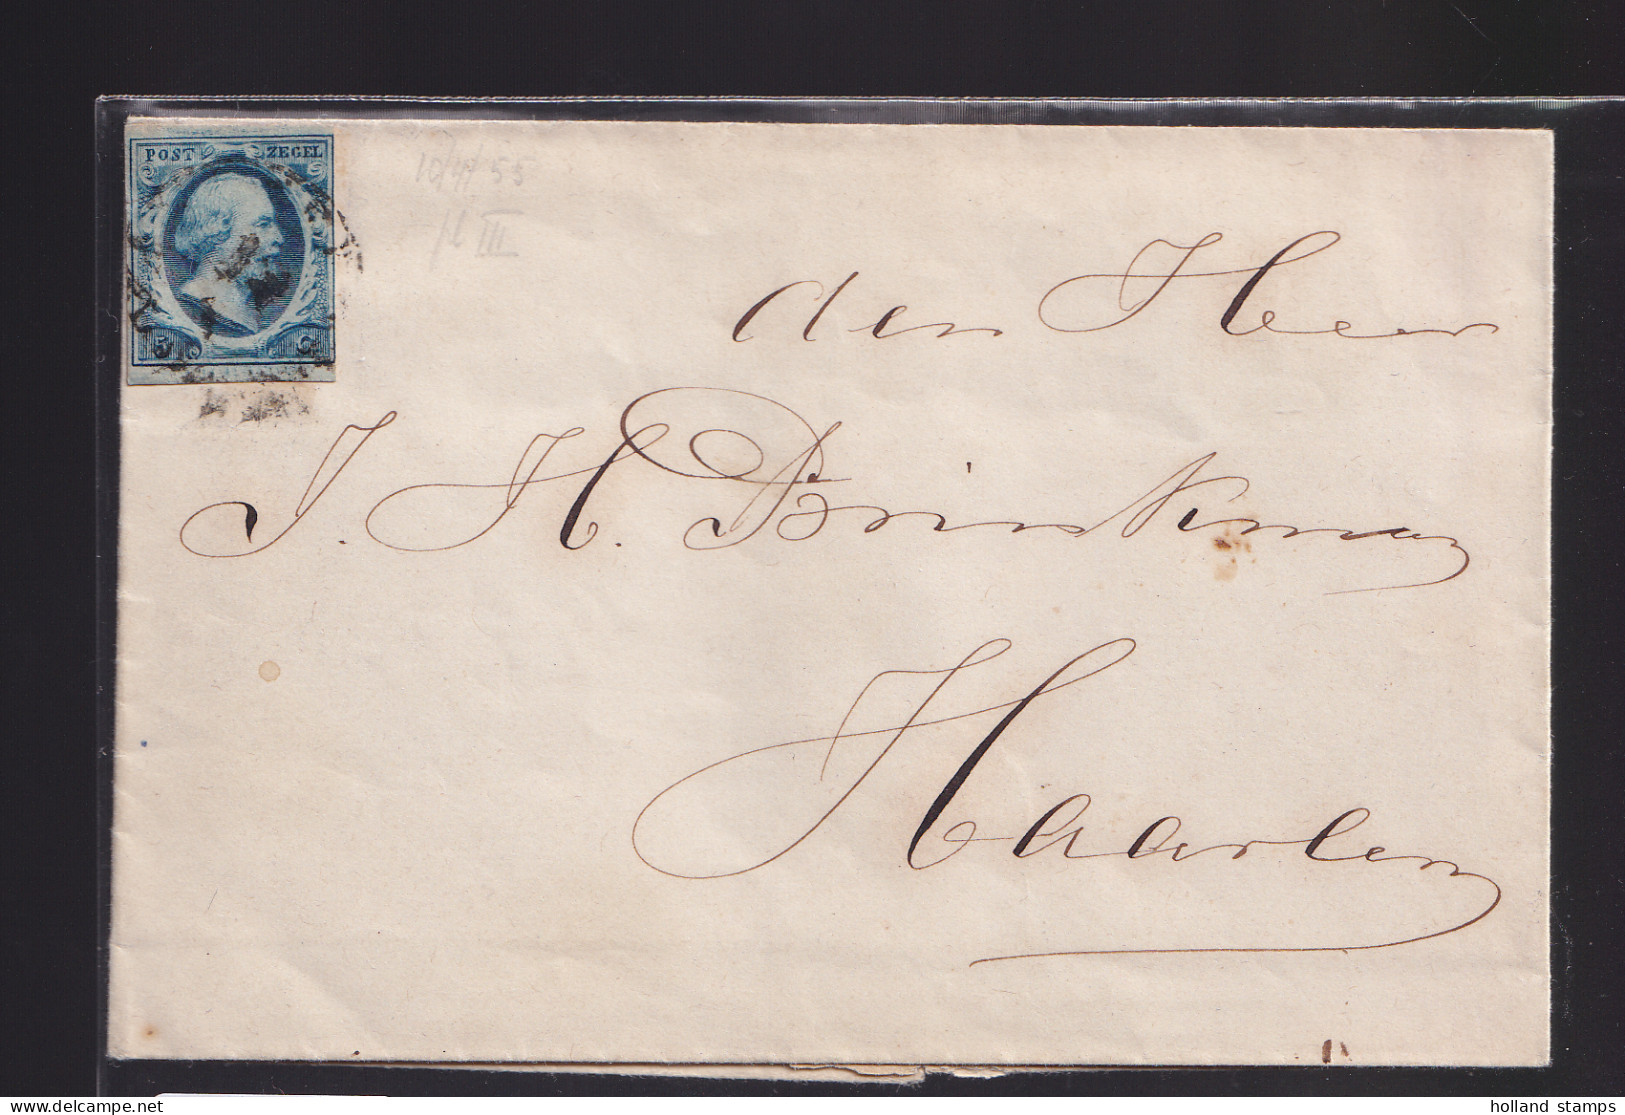 POST ZEGEL
5 C
10/4/55
pl III
den Heer
J. H. Brinkman
Haarlem
delcampe.net
holland stamps